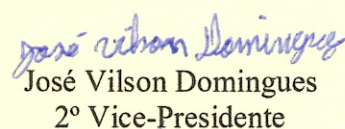 José Vilson Domingues
José Vilson Domingues
2º Vice-Presidente